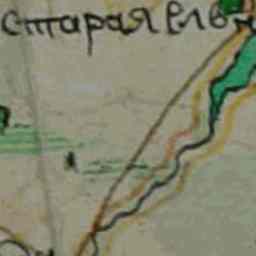 старая ель